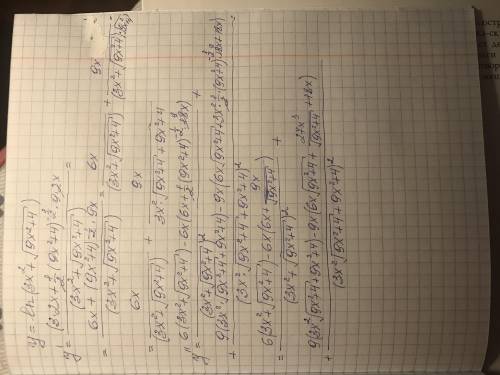 y = ln(3x²+√(9x²+4))
y' = (3·2x+1/2(9x²+4)^(-1/2)·9·2x)/(3x²+√(9x²+4)) =
= (6x+(9x²+4)^(-1/2)·9x)/(3x²+√(9x²+4)) = 6x/(3x²+√(9x²+4)) + 9x/((3x²+√(9x²+4))(9x²+4)^(1/2))
= 6x/(3x²+√(9x²+4)) + 9x/(3x²√(9x²+4)+9x²+4)
y'' = (6(3x²+√(9x²+4))-6x(6x+1/2(9x²+4)^(-1/2)·18x))/(3x²+√(9x²+4))² +
+ (9(3x²√(9x²+4)+9x²+4)-9x(6x√(9x²+4)+3x²·1/2(9x²+4)^(-1/2)·18x+18x))/(3x²√(9x²+4)+9x²+4)²
= (6(3x²+√(9x²+4))-6x(6x+9x/√(9x²+4)))/(3x²+√(9x²+4))² +
+ (9(3x²√(9x²+4)+9x²+4)-9x(6x√(9x²+4)+27x³/√(9x²+4)+18x))/(3x²√(9x²+4)+9x²+4)²